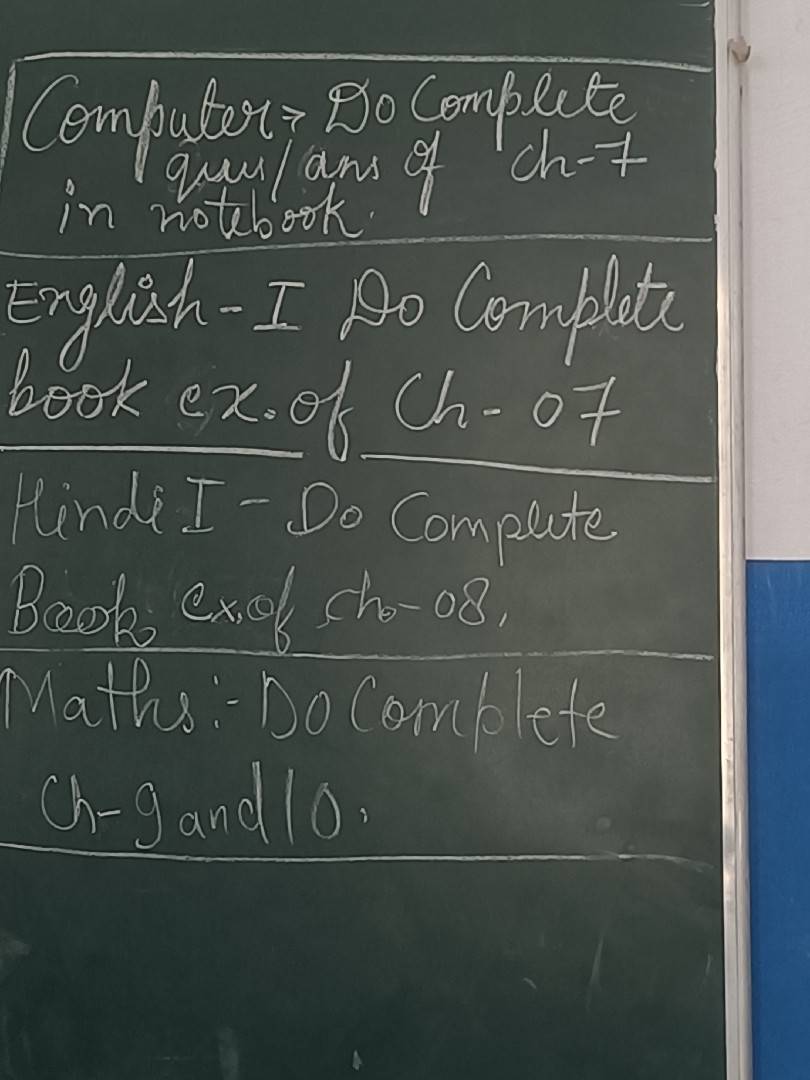 Computer → Do Complete
ques/ans of ch-7
in notebook.
English - I Do Complete
book ex. of Ch - 07
Hindi I - Do Complete
Book ex. of ch - 08.
Maths :- Do Complete
Ch-9 and 10.